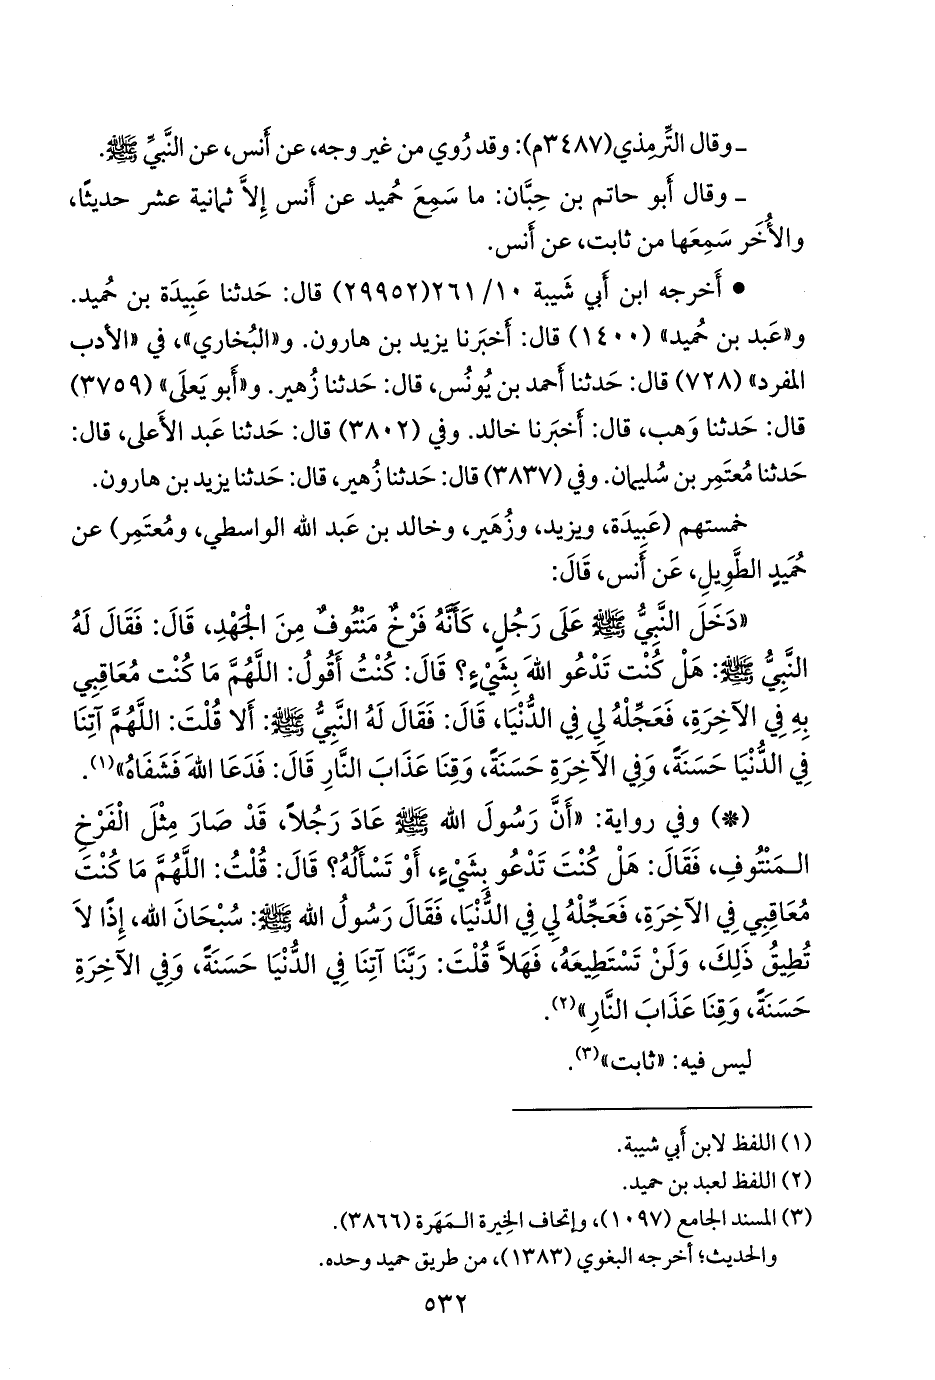 ـ وقال التِّرمِذي(٣٤٨٧م): وقد رُوي من غير وجه، عن أَنس، عن النَّبيِّ ﷺ.
ـ وقال أَبو حاتم بن حِبَّان: ما سَمِعَ حُميد عن أَنس إِلاَّ ثمانية عشر حديثًا،
والأُخَر سَمِعَها من ثابت، عن أَنس.
• أَخرجه ابن أَبي شَيبة ١٠/ ٢٦١(٢٩٩٥٢) قال: حَدثنا عَبِيدَة بن حُميد.
و«عَبد بن حُميد» (١٤٠٠) قال: أَخبَرنا يزيد بن هارون. و«البُخاري»، في «الأدب
المفرد» (٧٢٨) قال: حَدثنا أَحمد بن يُونُس، قال: حَدثنا زُهير. و«أَبو يَعلَى» (٣٧٥٩)
قال: حَدثنا وَهب، قال: أَخبَرنا خالد. وفي (٣٨٠٢) قال: حَدثنا عَبد الأَعلى، قال:
حَدثنا مُعتَمِر بن سُليمان. وفي (٣٨٣٧) قال: حَدثنا زُهير، قال: حَدثنا يزيد بن هارون.
خمستهم (عَبِيدَة، ويزيد، وزُهَير، وخالد بن عَبد الله الواسطي، ومُعتَمِر) عن
حُمَيدٍ الطَّوِيلِ، عَن أَنس، قَالَ:
«دَخَلَ النَّبِيُّ ﷺ عَلَى رَجُلٍ، كَأَنَّهُ فَرْخٌ مَنْتُوفٌ مِنَ الْجَهْدِ، قَالَ: فَقَالَ لَهُ
النَّبِيُّ ﷺ: هَلْ كُنْت تَدْعُو اللهَ بِشَيْءٍ؟ قَالَ: كُنْتُ أَقُولُ: اللَّهُمَّ مَا كُنْت مُعَاقِبِي
بِهِ فِي الآخِرَةِ، فَعَجِّلْهُ لِي فِي الدُّنْيَا، قَالَ: فَقَالَ لَهُ النَّبِيُّ ﷺ: أَلا قُلْتَ: اللَّهُمَّ آتِنَا
فِي الدُّنْيَا حَسَنَةً، وَفِي الآخِرَةِ حَسَنَةً، وَقِنَا عَذَابَ النَّارِ قَالَ: فَدَعَا اللهَ فَشَفَاهُ»(١).
(*) وفي رواية: «أَنَّ رَسُولَ الله ﷺ عَادَ رَجُلاً، قَدْ صَارَ مِثْلَ الْفَرْخِ
الـمَنْتُوفِ، فَقَالَ: هَلْ كُنْتَ تَدْعُو بِشَيْءٍ، أَوْ تَسْأَلُهُ؟ قَالَ: قُلْتُ: اللَّهُمَّ مَا كُنْتَ
مُعَاقِبِي فِي الآخِرَةِ، فَعَجِّلْهُ لِي فِي الدُّنْيَا، فَقَالَ رَسُولُ الله ﷺ: سُبْحَانَ الله، إِذًا لاَ
تُطِيقُ ذَلِكَ، وَلَنْ تَسْتَطِيعَهُ، فَهَلاَّ قُلْتَ: رَبَّنَا آتِنَا فِي الدُّنْيَا حَسَنَةً، وَفِي الآخِرَةِ
حَسَنَةً، وَقِنَا عَذَابَ النَّارِ»(٢).
ليس فيه: «ثابت»(٣).
(١) اللفظ لابن أَبي شيبة.
(٢) اللفظ لعبد بن حميد.
(٣) المسند الجامع (١٠٩٧)، وإتحاف الخِيرة الـمَهَرة (٣٨٦٦).
والحديث؛ أخرجه البغوي (١٣٨٣)، من طريق حميد وحده.
٥٣٢